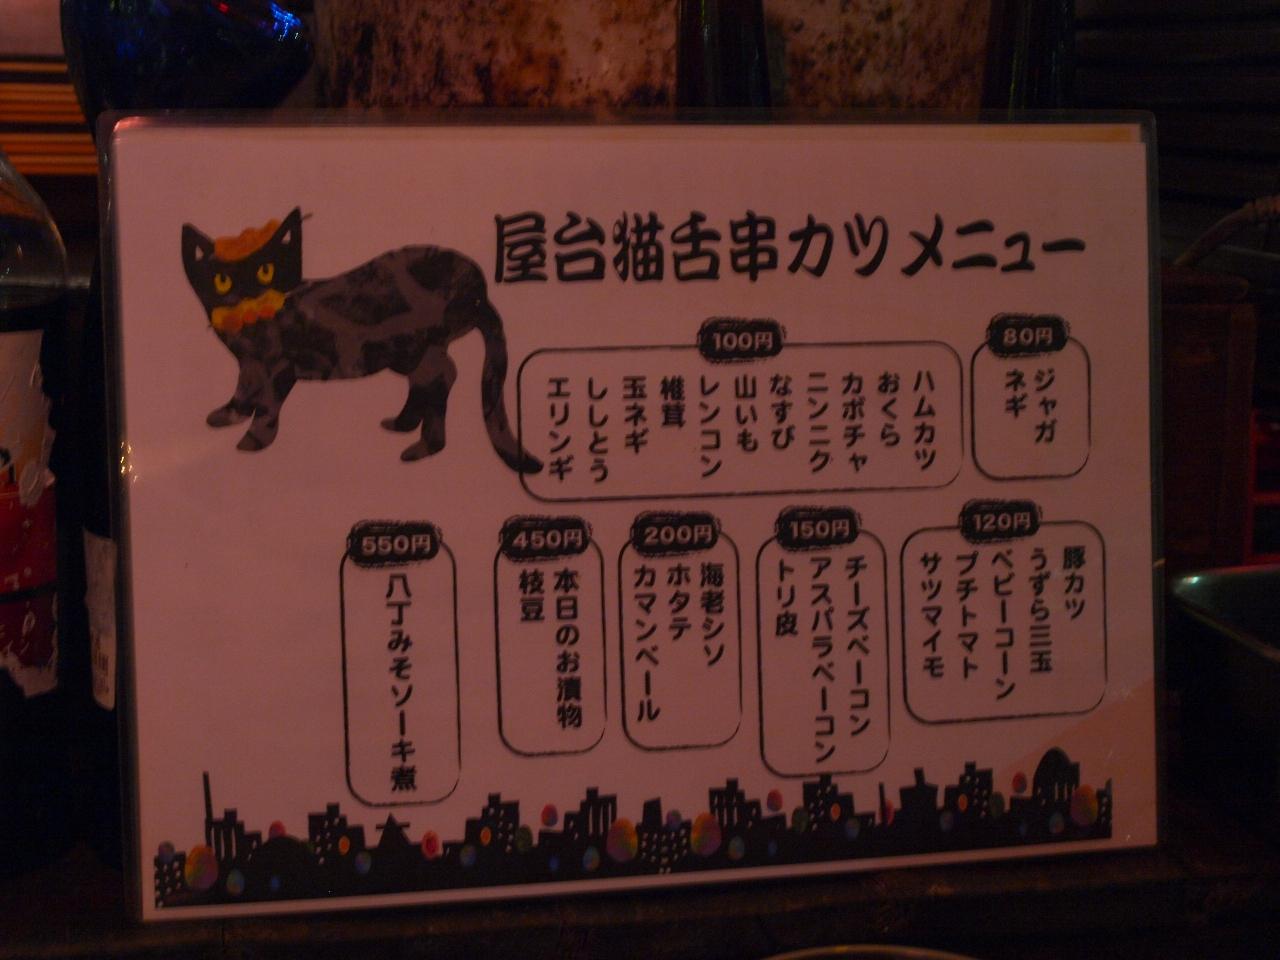 屋台猫舌串カツメニュー
80円
ジャガ
ネギ
100円
ハムカツ
おくら
カボチャ
ニンニク
なすび
山いも
レンコン
椎茸
玉ネギ
ししとう
エリンギ
120円
豚カツ
うずら三玉
ベビーコーン
プチトマト
サツマイモ
150円
チーズベーコン
アスパラベーコン
トリ皮
200円
海老シソ
ホタテ
カマンベール
450円
本日のお漬物
枝豆
550円
八丁みそソーキ煮